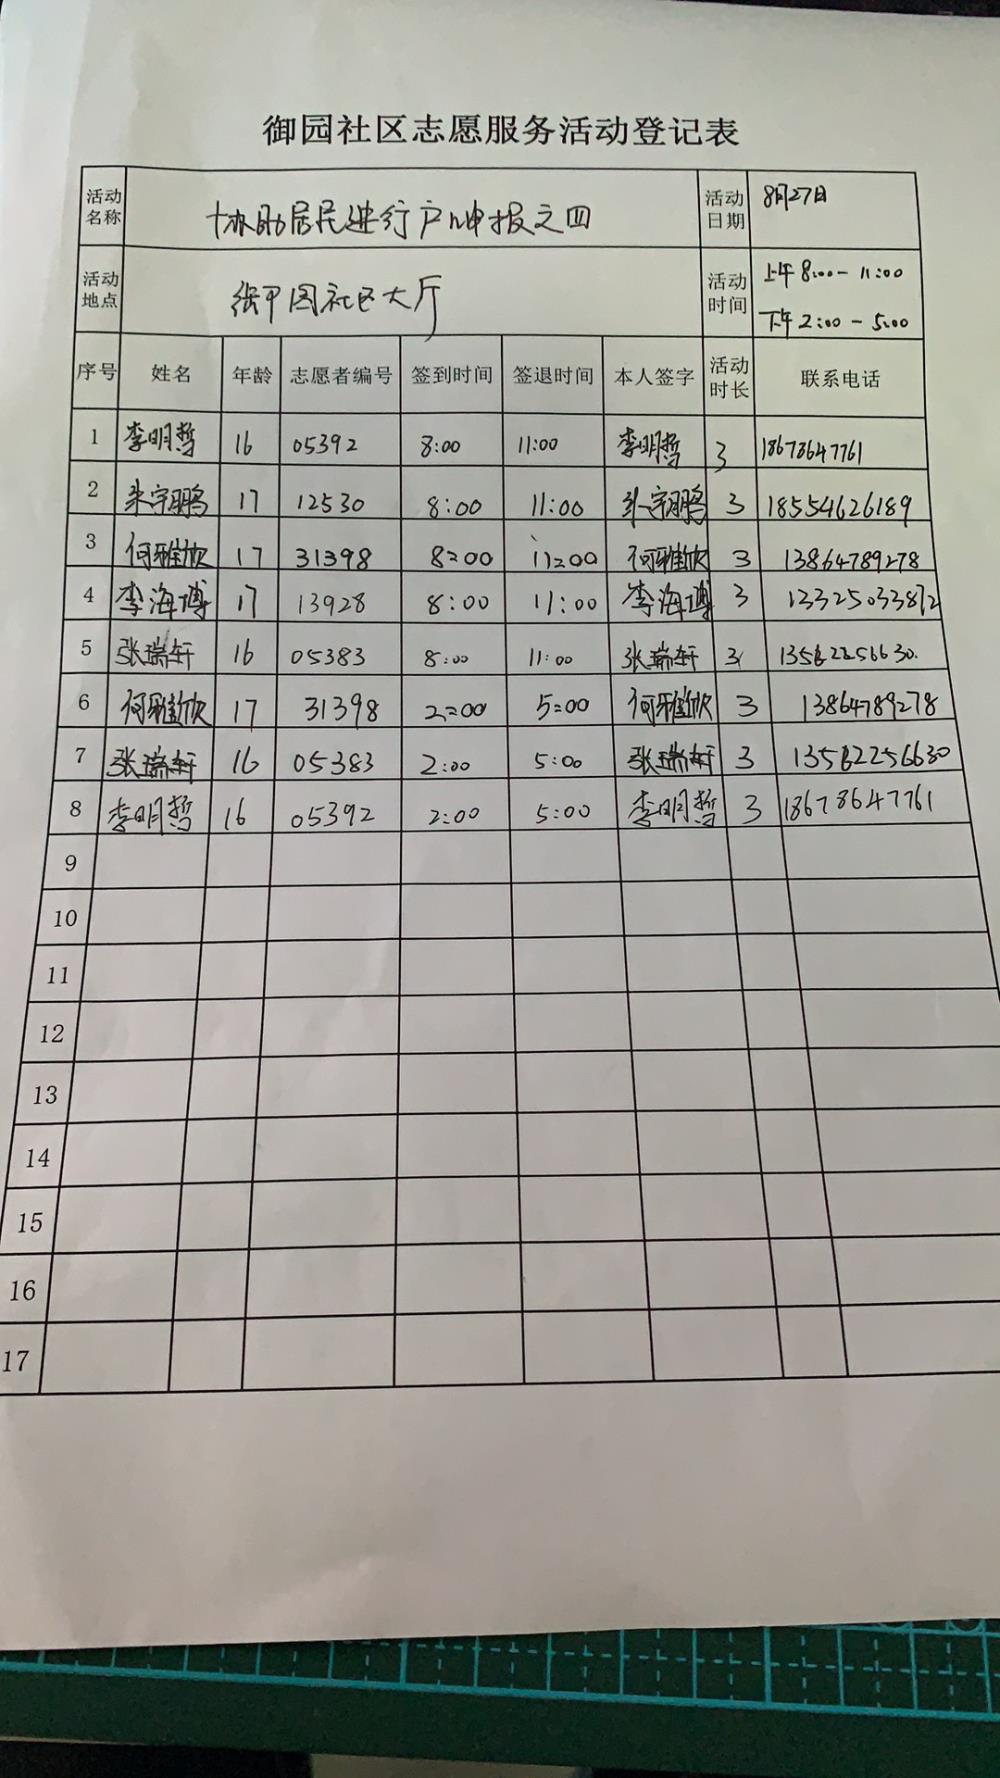 御园社区志愿服务活动登记表
活动名称 协助居民进行户口申报之四 活动日期 8月27日
活动地点 社区大厅 活动时间 上午8:00-11:00
下午2:00-5:00
序号 姓名 年龄 志愿者编号 签到时间 签退时间 本人签字 活动时长 联系电话
1 李明哲 16 05392 8:00 11:00 李明哲 3 18678647761
2 宇鹏 17 12530 8:00 11:00 宇鹏 3 18554626189
3 何雅欣 17 31398 8:00 11:00 何雅欣 3 13864789278
4 李海博 17 13928 8:00 11:00 李海博 3 13325033872
5 张瑞轩 16 05383 8:00 11:00 张瑞轩 3 13562256630
6 何雅欣 17 31398 2:00 5:00 何雅欣 3 13864789278
7 张瑞轩 16 05383 2:00 5:00 张瑞轩 3 13562256630
8 李明哲 16 05392 2:00 5:00 李明哲 3 18678647761
9
10
11
12
13
14
15
16
17